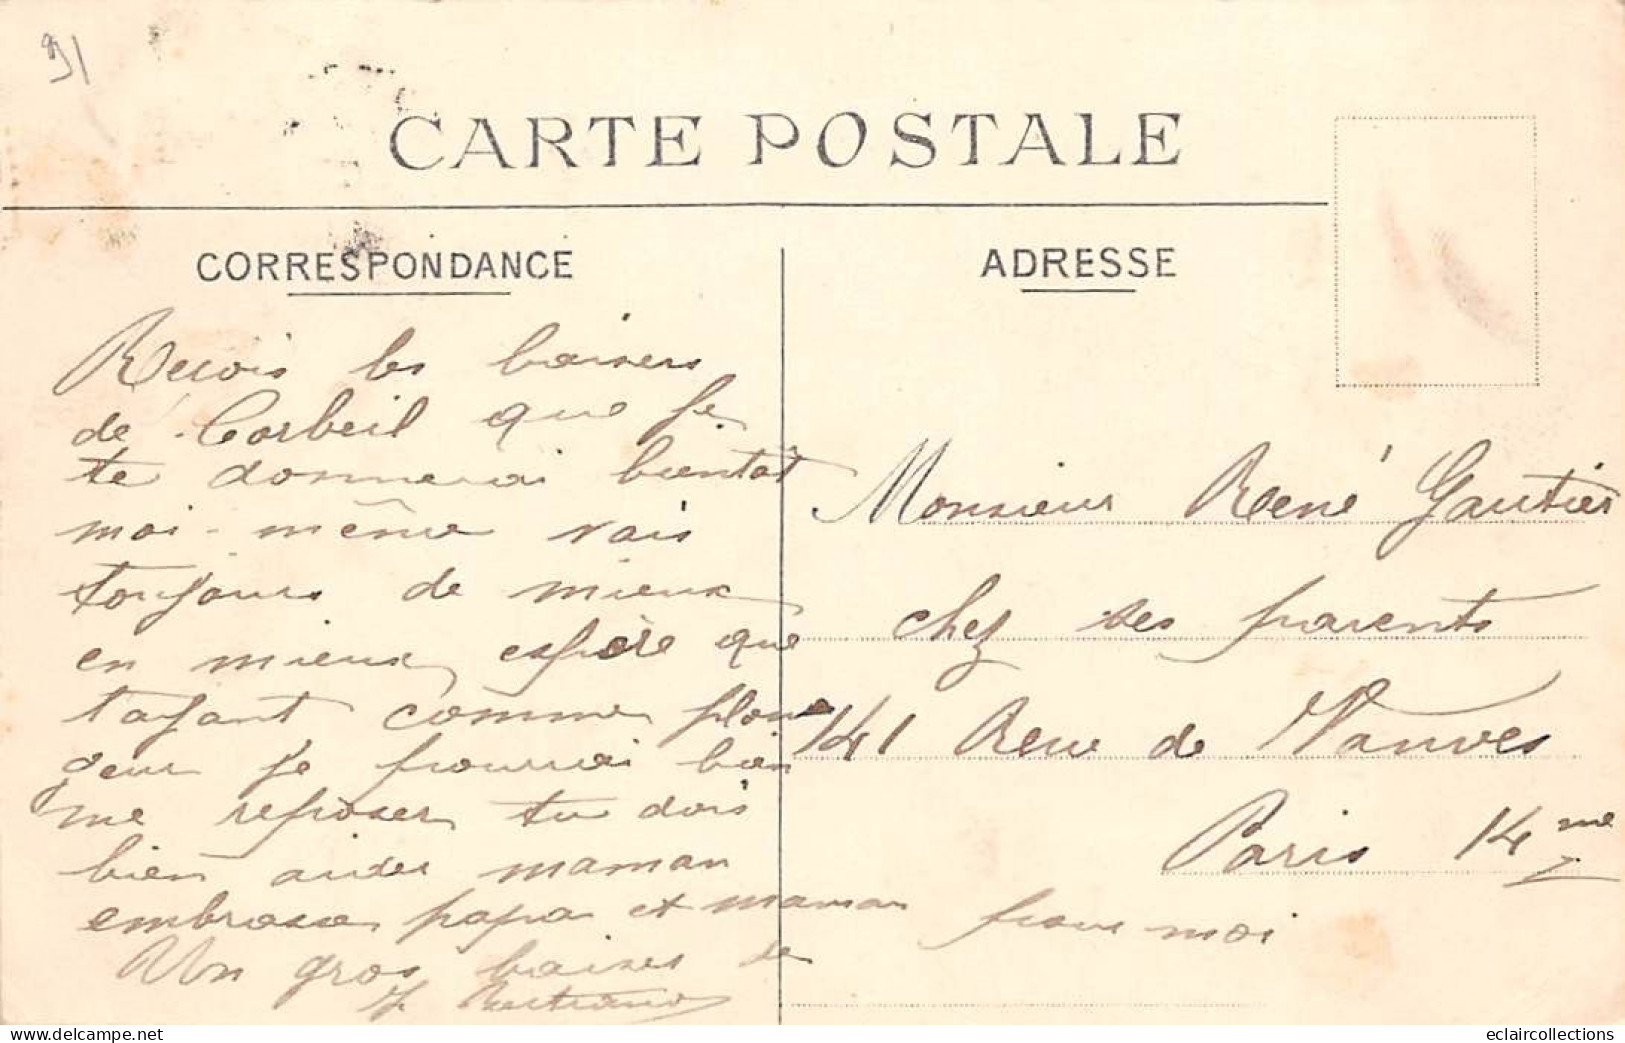 91
CARTE POSTALE
CORRESPONDANCE
ADRESSE
Reçois les baisers
de Corbeil que je
te donnerai bientôt
moi-même vais
toujours de mieux
en mieux espère que
t'ayant comme
je pourrai bien
me reposer tu dois
bien aider maman
embrasse papa et maman pour moi
Un gros baiser de
Monsieur René Gautier
chez ses parents
141 Rue de Vanves
Paris 14me
eclaircollections